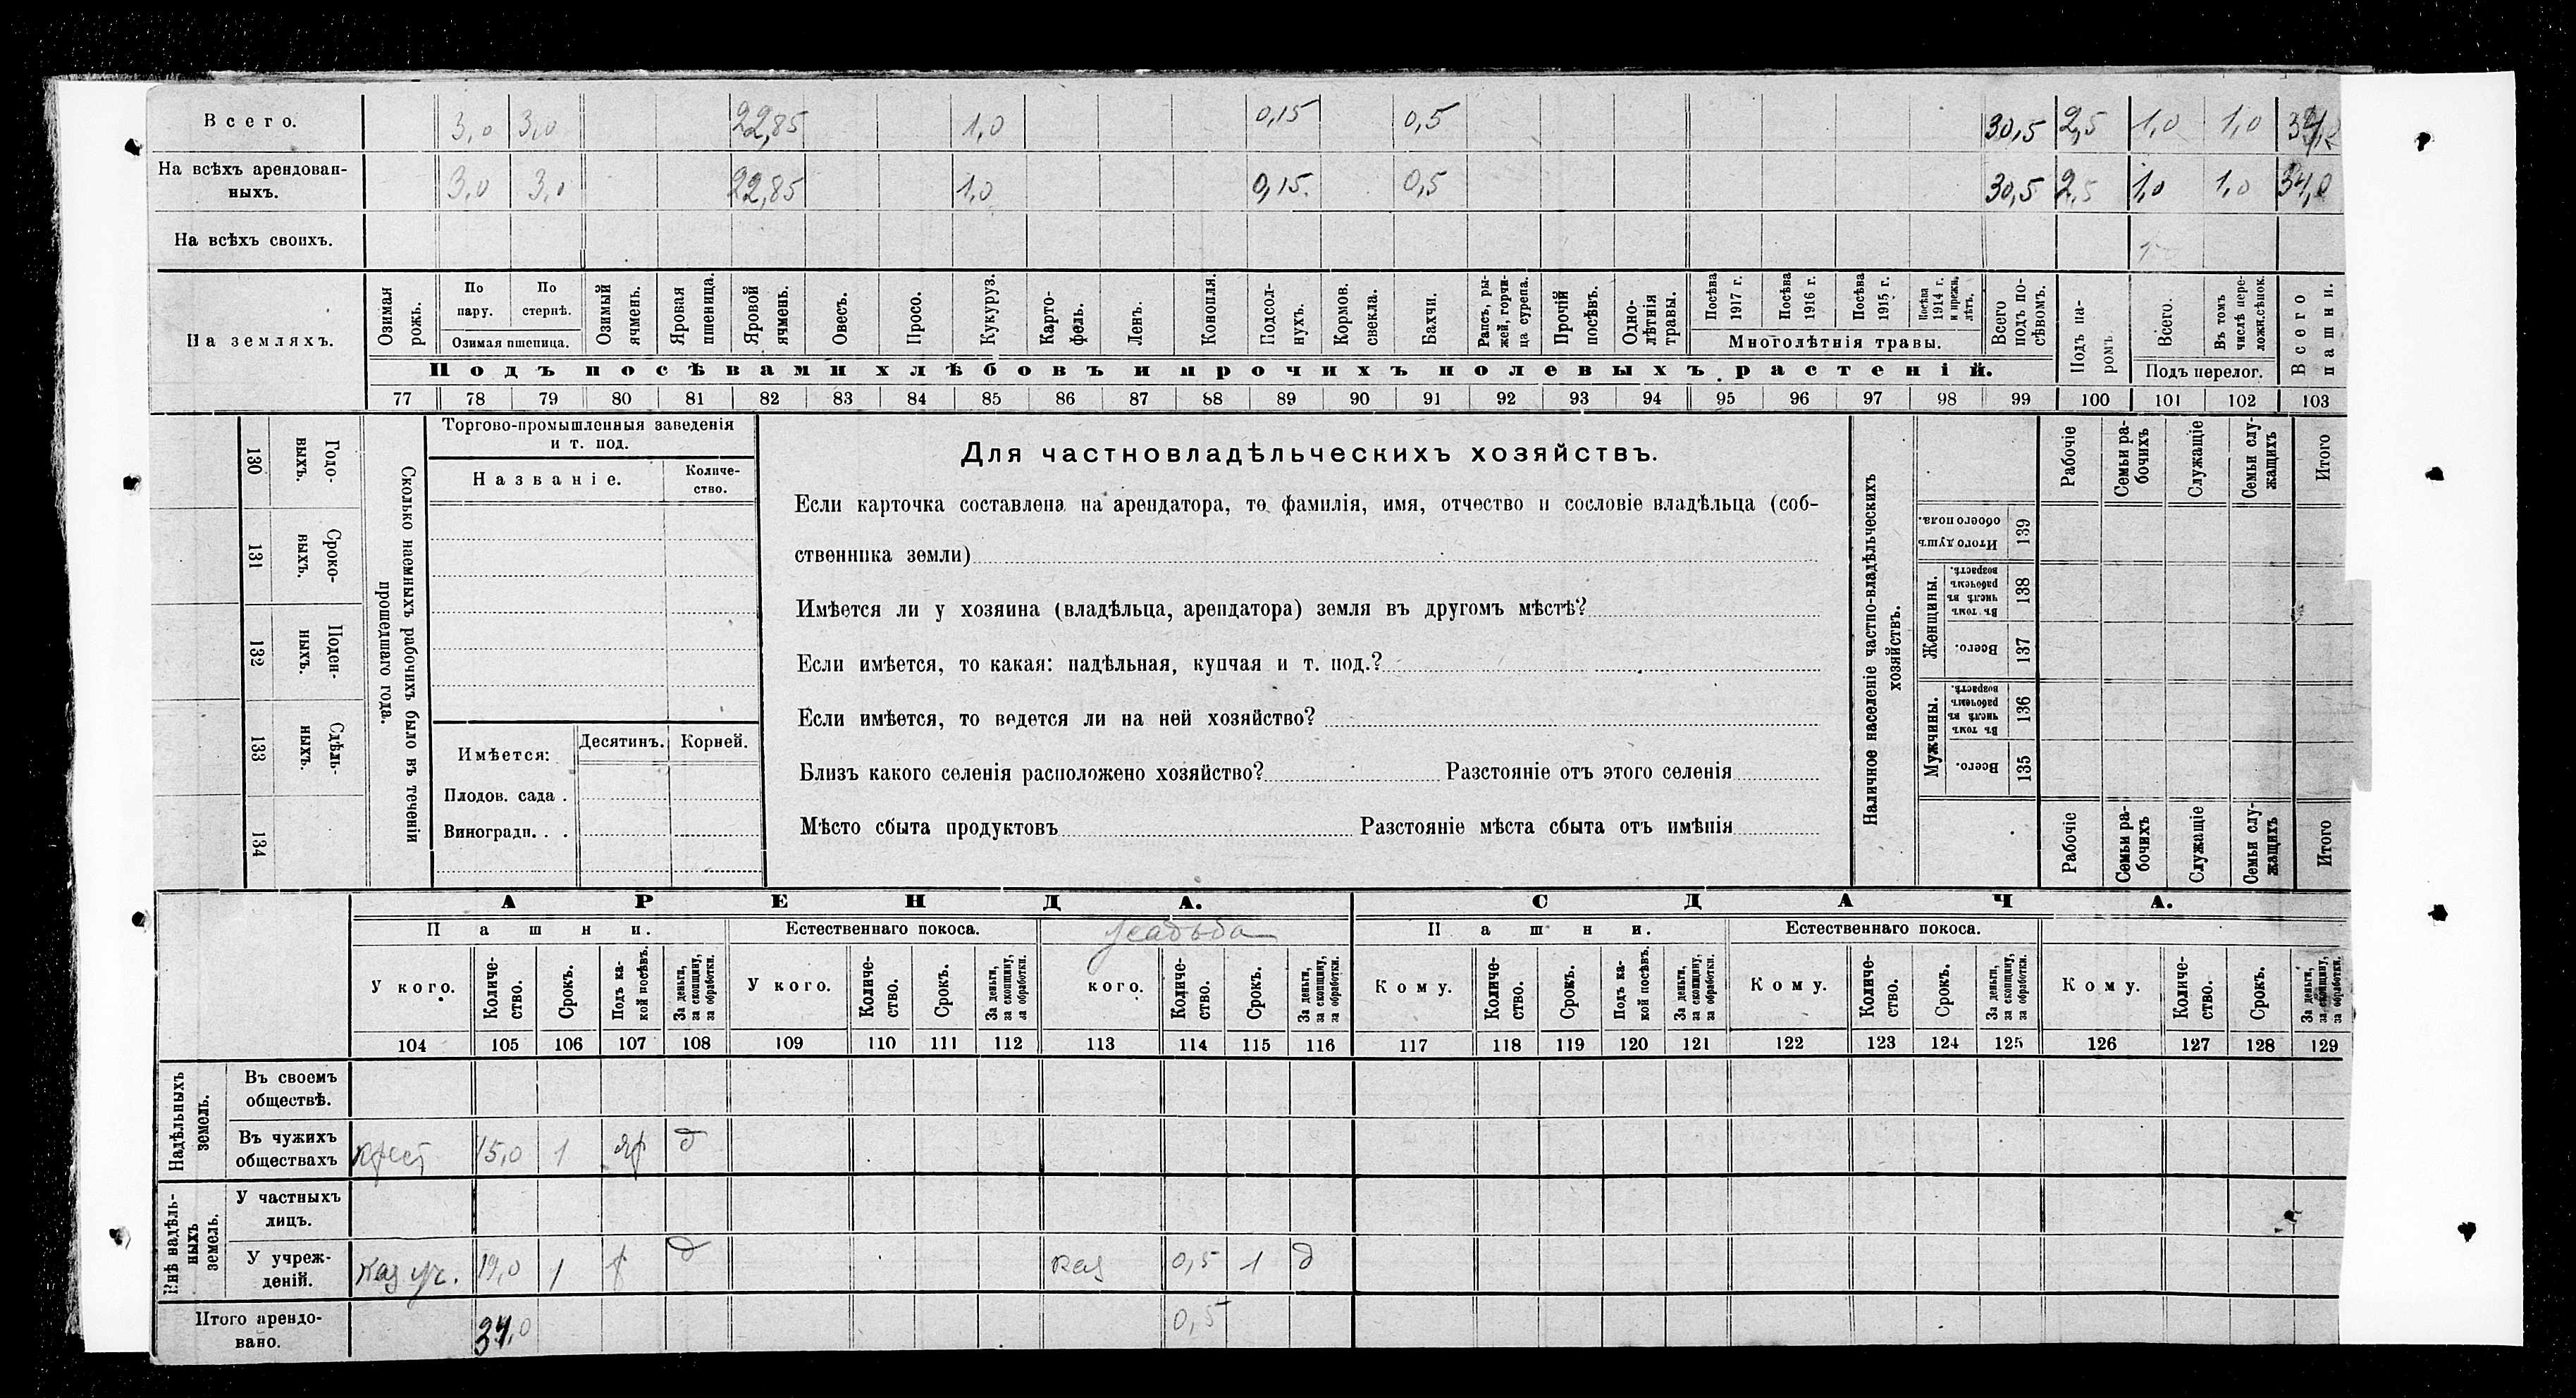 Всего. 3,0 3,0 22,85 1,0 0,15 0,5 30,5 2,5 1,0 1,0
На всѣхъ арендован-
ныхъ. 3,0 3,0 22,85 1,0 0,15 0,5 30,5 2,5 1,0 1,0 34,0
На всѣхъ своихъ.
На земляхъ.
Озимая рожь.
По пару.
По стернѣ.
Озимая пшеница.
Озимый ячмень.
Яровая пшеница.
Яровой ячмень.
Овесъ.
Просо.
Кукуруз.
Карто-
фель.
Ленъ.
Конопля.
Подсол-
нухъ.
Кормов. свекла.
Бахчи.
Рапсъ, ры-
жей, горчи-
ца сурепа.
Прочій посѣвъ.
Одно-
лѣтнія травы.
Посѣва 1917 г.
Посѣва 1916 г.
Посѣва 1915 г.
Посѣва 1914 г. и прежн. лѣтъ.
Многолѣтнія травы.
Всего подъ по-
сѣвомъ.
Подъ па-
ромъ
Всего.
Въ томъ числѣ пере-
ложн.сѣнок.
Подъ перелог.
Всего пашни.
Подъ посѣвами хлѣбовъ и прочихъ полевыхъ растеній.
77 78 79 80 81 82 83 84 85 86 87 88 89 90 91 92 93 94 95 96 97 98 99 100 101 102 103
130 Годо-
выхъ.
131 Сроко-
ныхъ.
132 Поден-
ныхъ.
133 Сдѣль-
ныхъ.
134
Сколько наемныхъ рабочихъ было въ теченіи
прошедшаго года.
Торгово-промышленныя заведенія
и т. под.
Названіе.
Количе-
ство.
Имѣется:
Десятинъ. Корней.
Плодов. сада .
Виноградн. . .
Для частновладѣльческихъ хозяйствъ.
Если карточка составлена на арендатора, то фамилія, имя, отчество и сословіе владѣльца (соб-
ственника земли)
Имѣется ли у хозяина (владѣльца, арендатора) земля въ другомъ мѣстѣ?
Если имѣется, то какая: надѣльная, купчая и т. под.?
Если имѣется, то ведется ли на ней хозяйство?
Близъ какого селенія расположено хозяйство? Разстояніе отъ этого селенія
Мѣсто сбыта продуктовъ Разстояніе мѣста сбыта отъ имѣнія
Наличное населеніе частно-владѣльческихъ
хозяйствъ.
Рабочіе
Семьи ра-
бочихъ
Служащіе
Семьи слу-
жащихъ
Итого
Итого душъ обоего пола. 139
Женщины.
Въ томъ числѣ въ рабочемъ возрастѣ. 138
Всего. 137
Мужчины.
Въ томъ числѣ въ рабочемъ возрастѣ. 136
Всего. 135
Рабочіе
Семьи ра-
бочихъ
Служащіе
Семьи слу-
жащихъ
Итого
АРЕНДА. СДАЧА.
Пашни. Естественнаго покоса. Усадьба Пашни. Естественнаго покоса.
У кого.
Количе-
ство.
Срокъ.
Подъ ка-
кой посѣвъ.
За деньги, за скопщину, за обработки.
У кого.
Количе-
ство.
Срокъ.
За деньги, за скопщину, за обработки.
кого.
Количе-
ство.
Срокъ.
За деньги, за скопщину, за обработки.
Кому.
Количе-
ство.
Срокъ.
Подъ ка-
кой посѣвъ.
За деньги, за скопщину, за обработки.
Кому.
Количе-
ство.
Срокъ.
За деньги, за скопщину, за обработки.
Кому.
Количе-
ство.
Срокъ.
За деньги, за скопщину, за обработки.
104 105 106 107 108 109 110 111 112 113 114 115 116 117 118 119 120 121 122 123 124 125 126 127 128 129
Надѣльныхъ
земель.
Въ своемъ
обществѣ.
Въ чужихъ
обществахъ крест 15,0 1 яр д
Внѣ надѣль-
ныхъ
земель.
У частныхъ
лицъ.
У учреж-
деній. Каз уч. 19,0 1 д каз 0,5 1 д
Итого арендо-
вано. 34,0 0,5